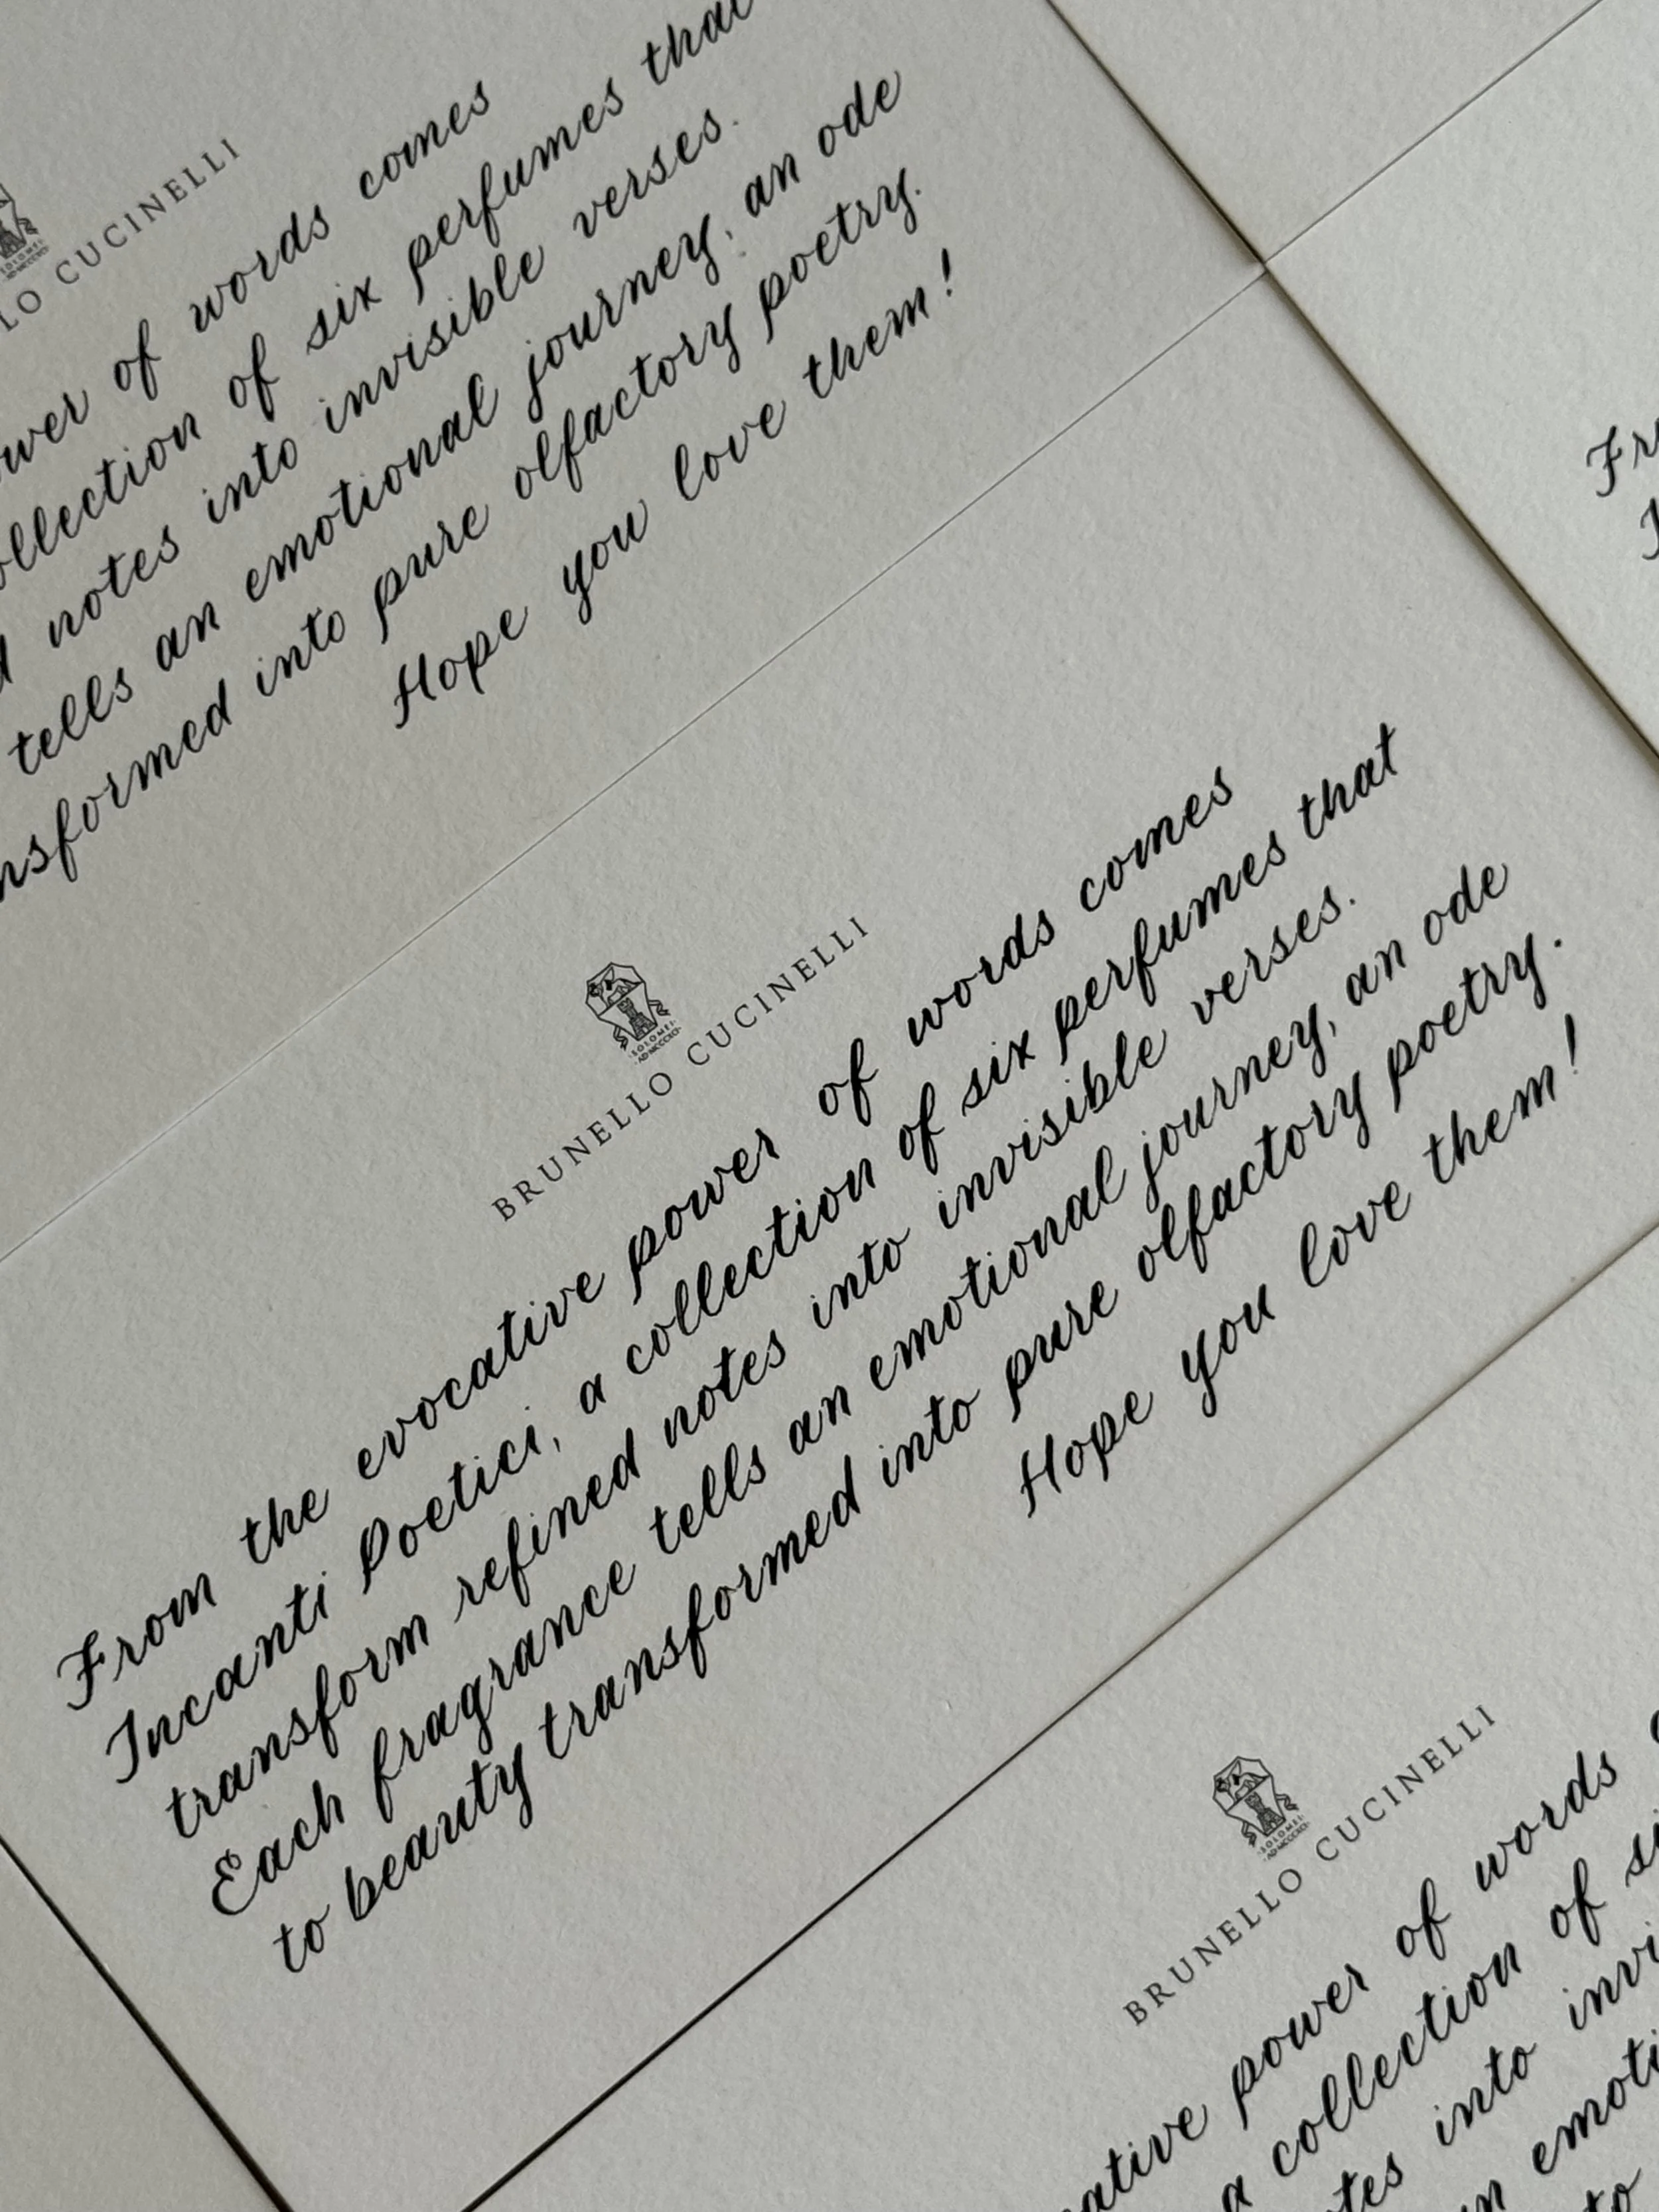 LO CUCINELLI
ower of words comes
ollection of six perfumes that
d notes into invisible verses.
tells an emotional journey, an ode
nsformed into pure olfactory poetry.
Hope you love them!
SOLOMEI
AD MCCCXCI
BRUNELLO CUCINELLI
From the evocative power of words comes
Incanti Poetici, a collection of six perfumes that
transform refined notes into invisible verses.
Each fragrance tells an emotional journey, an ode
to beauty transformed into pure olfactory poetry.
Hope you love them!
Fr
I
SOLOMEI
AD MCCCXCI
BRUNELLO CUCINELLI
ative power of words c
a collection of si
tes into invi
n emoti
to